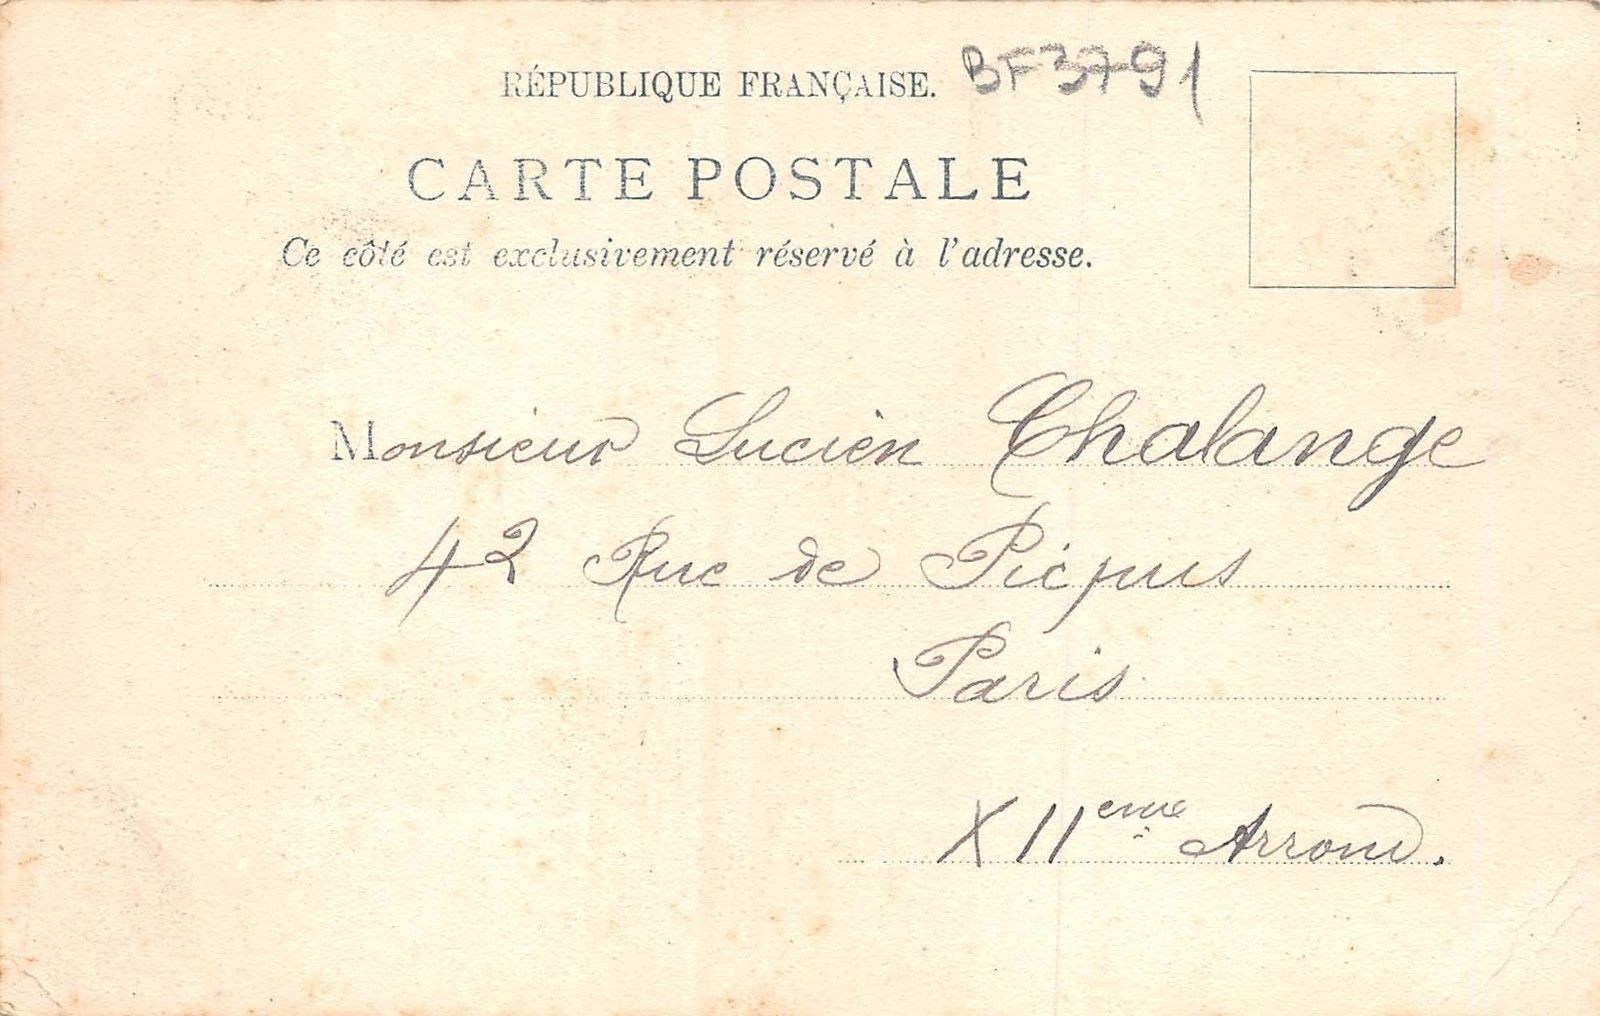 RÉPUBLIQUE FRANÇAISE. BF3791
CARTE POSTALE
Ce côté est exclusivement réservé à l'adresse.
Monsieur Lucien Chalange
42 Rue de Picpus
Paris
XII eme Arrond.